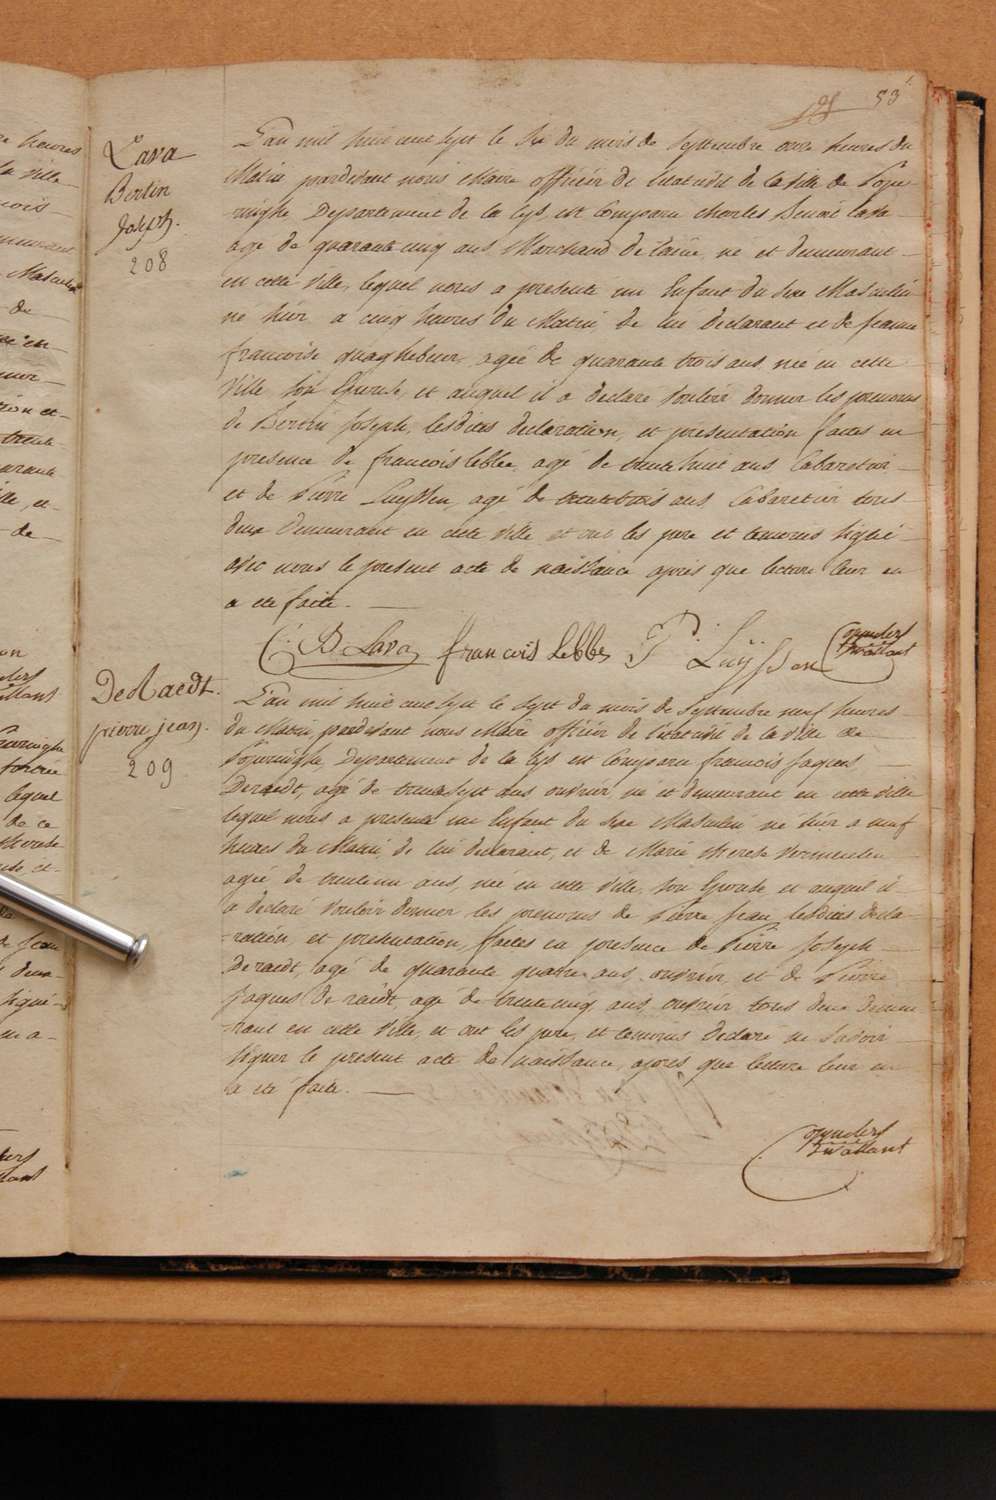 53
Lava
Bertin
Joseph.
208
L'an mil huit cent sept le six du mois de Septembre onze heures du
Matin pardevant nous Maire officier de l'etat civil de la ville de Pope-
-ringhe Departement de la Lys, est Comparu Charles Benoit Lava
agé de quarante cinq ans Marchand de laine, né et demeurant
en cette ville, lequel nous a presenté un Enfant du sexe Masculin
né hier a cinq heures du Matin, de lui declarant et de jeanne
francoise quaghebeur, agée de quarante trois ans, née en cette
ville, son Epouse, et auquel il a declaré vouloir donner les prenoms
de Bertin Joseph, lesdites declaration, et presentation faites en
presence de francois lebbe, agé de trente huit ans Cabaretier
et de Pierre Luyssen, agé de trente trois ans, Cabaretier tous
deux demeurant en cette ville et ont les pere et temoins signé
avec nous le present acte de naissance après que lecture leur en
a eté faite.
C. B. Lava francois Lebbe P. Luÿssen
DeRaedt.
pierre jean.
209
L'an mil huit cent sept le sept du mois de Septembre neuf heures
du Matin, pardevant nous Maire officier de l'etat civil de la ville de
Poperinghe, Departement de la Lys est Comparu francois jaques
Deraedt, agé de trente sept ans ouvrier, né et demeurant en cette ville
lequel nous a presenté un Enfant du sexe Masculin né hier a neuf
heures du Matin, de lui declarant, et de Marie therese Vermeulen
agée de trente un ans, née en cette ville, son Epouse et auquel il
a declaré vouloir donner les prenoms de Pierre jean, lesdites decla-
-ration, et presentation, faites en presence de Pierre Joseph
Deraedt, agé de quarante quatre ans, ouvrier, et de Pierre
Jaques De raedt agé de trente cinq ans, ouvrier tous deux demeu-
-rant en cette ville, et ont les pere, et temoins declaré ne savoir
signer le present acte de naissance, apres que lecture leur en
a eté faite.